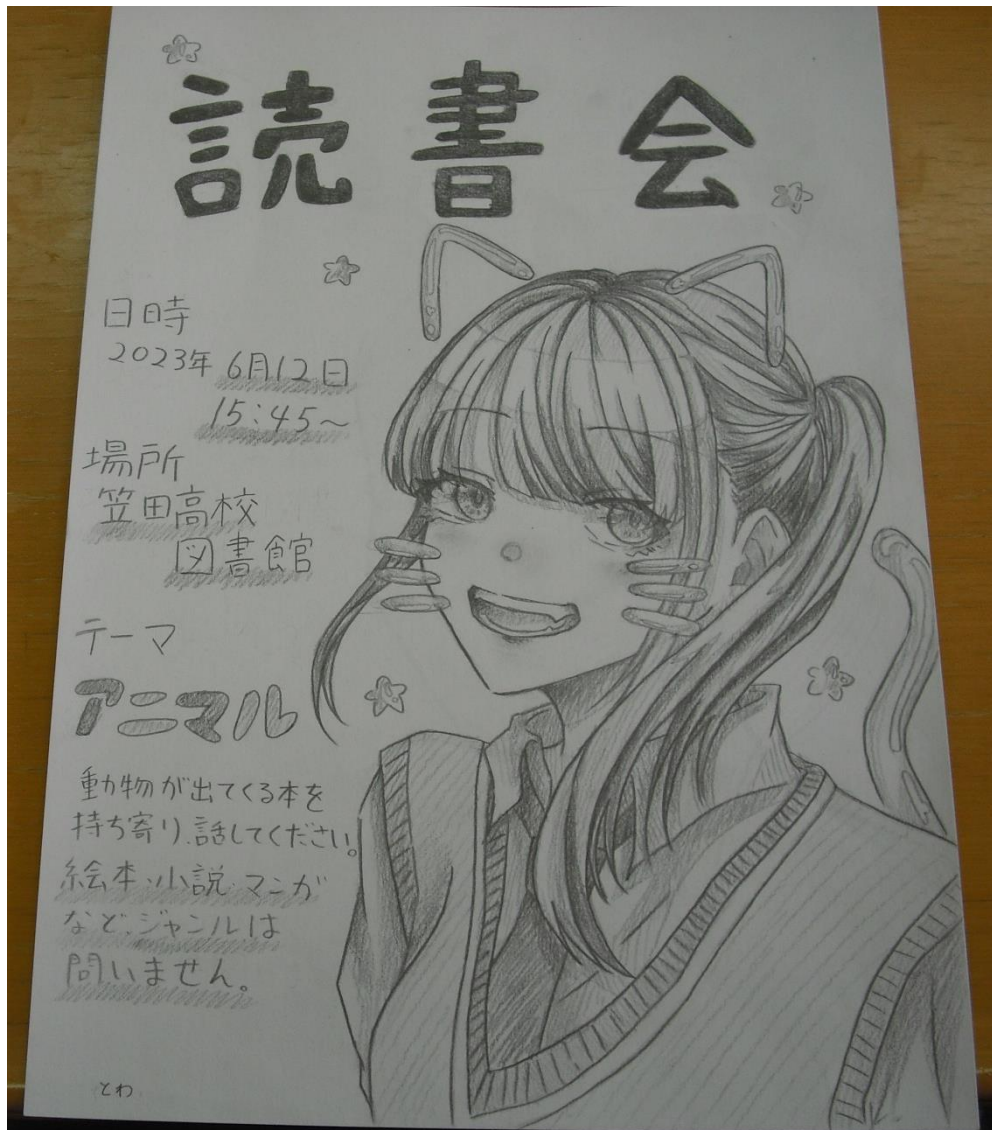 読書会
日時
2023年 6月12日
15:45～
場所
笠田高校
図書館
テーマ
アニマル
動物が出てくる本を
持ち寄り、話してください。
絵本・小説・マンガ
など、ジャンルは
問いません。
とわ